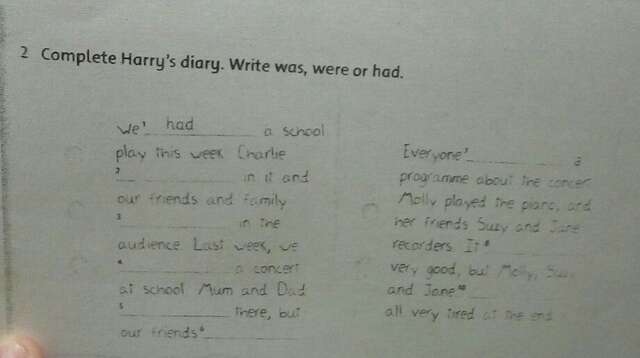 2 Complete Harry's diary. Write was, were or had.
We¹ had a school
play this week Charlie
2 in it and
our friends and family
3 in the
audience. Last week, we
4 a concert
at school Mum and Dad
5 there, but
our friends 6
Everyone 7 a
programme about the concer
Molly played the piano, and
her friends Suzy and Jane
recorders. It 8
very good, but Molly,
and Jane
all very tired at the end